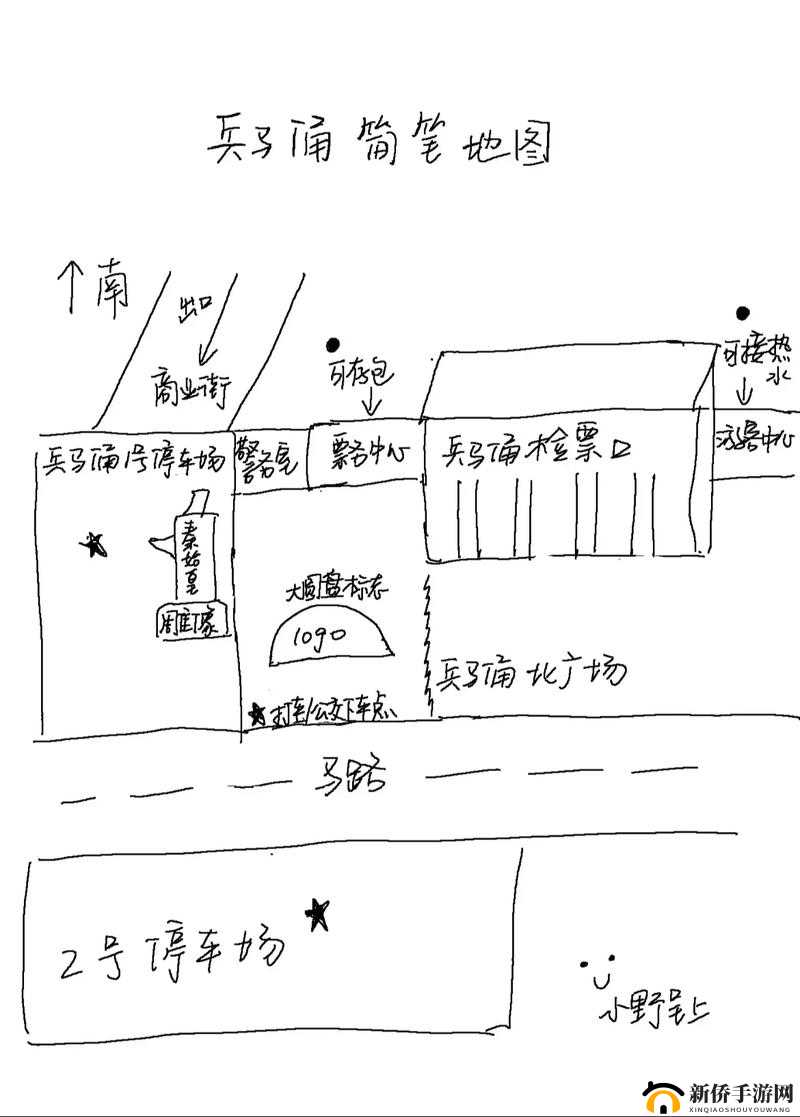 兵马俑简笔地图
南
出口
商业街
可存包
可接热水
兵马俑1号停车场
警务室
票务中心
兵马俑检票口
游客中心
秦始皇
雕像
大圆盘标志
1090
兵马俑北广场
打车/公交下车点
马路
2号停车场
小野呈上
新侨手游网
XINQIAOSHOUYOUWANG